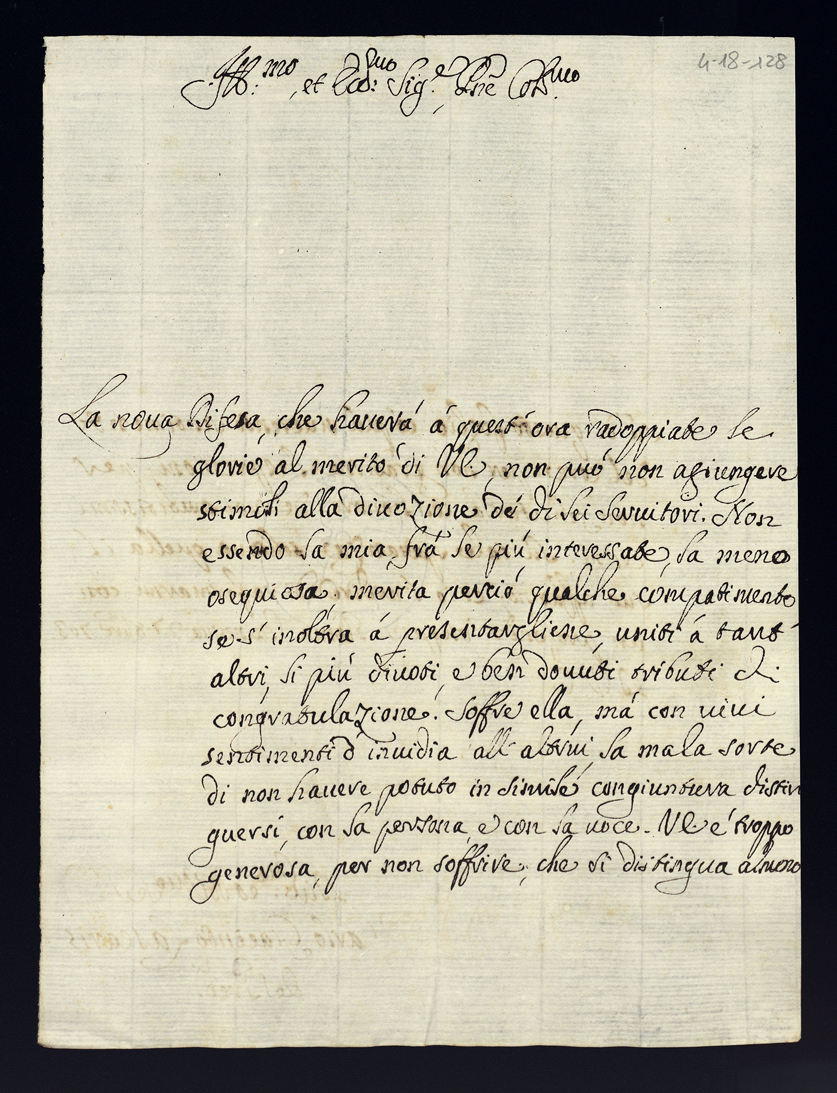 4-18-128
Ill:mo, et Ecc:mo Sig.e Pne Col.mo
La noua Difesa, che hauerá á quest'ora radoppiate le
glorie al merito di VE, non può non agiungere
stimoli alla diuozione dé di lei Seruitori. Non
essendo la mia, frá le più interessate, la meno
osequiosa, merita perció qualche compatimento
se s'inoltra á presentargliene, uniti á tant'
altri, si più diuoti, e ben douuti tributi di
congratulazione. Soffre ella, má con uiui
sentimenti d'inuidia all'altrui, la mala sorte
di non hauere potuto in simile congiuntura distin
guersi, con la persona, e con la uoce. VE é troppo
generosa, per non soffrire, che si distingua almeno